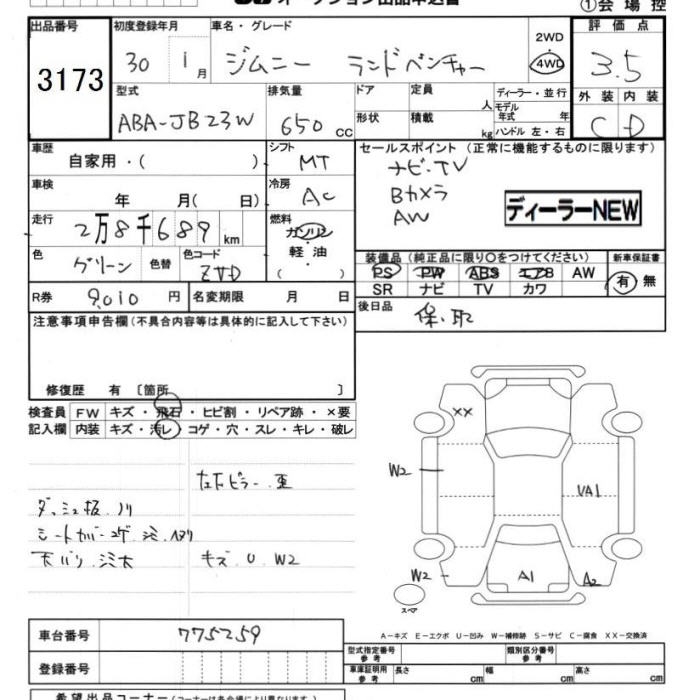 オークション出品申込書
①会場控
出品番号 3173
初度登録年月 30 1月
車名・グレード ジムニー ランドベンチャー
2WD
4WD
評価点 3.5
外装 内装
C D
型式 ABA-JB23W
排気量 650 cc
ドア 定員 人
形状 積載 kg
ディーラー・並行
モデル年式 年
ハンドル 左・右
車歴 自家用・( )
シフト MT
セールスポイント (正常に機能するものに限ります)
ナビ・TV
Bカメラ
AW
ディーラーNEW
車検 年 月( 日)
冷房 AC
走行 2万8千689 km
燃料 ガソリン
軽・油
( )
色 グリーン 色替 色コード ZVD
装備品 (純正品に限り○をつけてください)
PS PW ABS エアB AW
SR ナビ TV カワ
新車保証書
有 無
R券 9,010 円 名変期限 月 日
後日品 保、取
注意事項申告欄 (不具合内容等は具体的に記入して下さい)
修復歴 有 〔箇所 〕
検査員 FW キズ・飛石・ヒビ割・リペア跡・×要
記入欄 内装 キズ・汚レ・コゲ・穴・スレ・キレ・破レ
ダッシュ板、ノリ
天バリ
キズ U W2
XX
W2
UA1
W2
A1
A2
スペア
A-キズ E-エクボ U-凹み W-補修跡 S-サビ C-腐食 XX-交換済
車台番号 775259
登録番号
型式指定番号 参考
類別区分番号 参考
車庫証明用 参考 長さ cm 幅 cm 高さ cm
希望出品コーナー